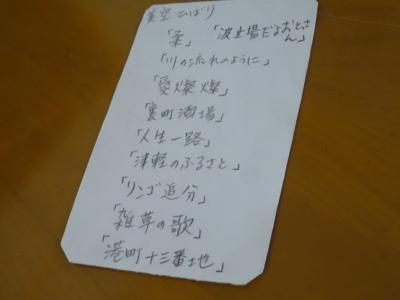 美空ひばり
「柔」 「波止場だよおとさん」
「川の流れのように」
「愛燦燦」
「裏町酒場」
「人生一路」
「津軽のふるさと」
「リンゴ追分」
「雑草の歌」
「港町十三番地」